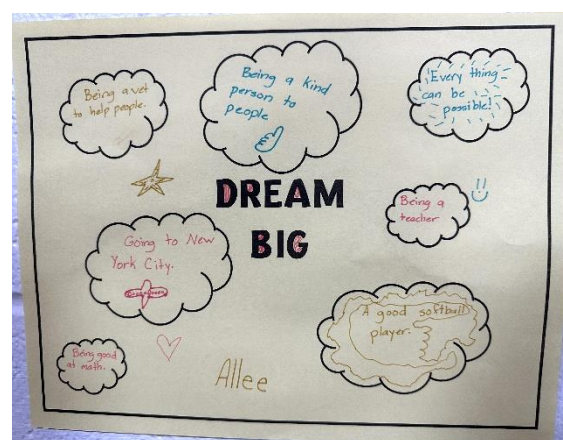 Being a vet
to help people.
Being a kind
person to
people
Every thing
can be
possible!
DREAM
BIG
Being a
teacher
Going to New
York City.
A good softball
player.
Being good
at math.
Allee